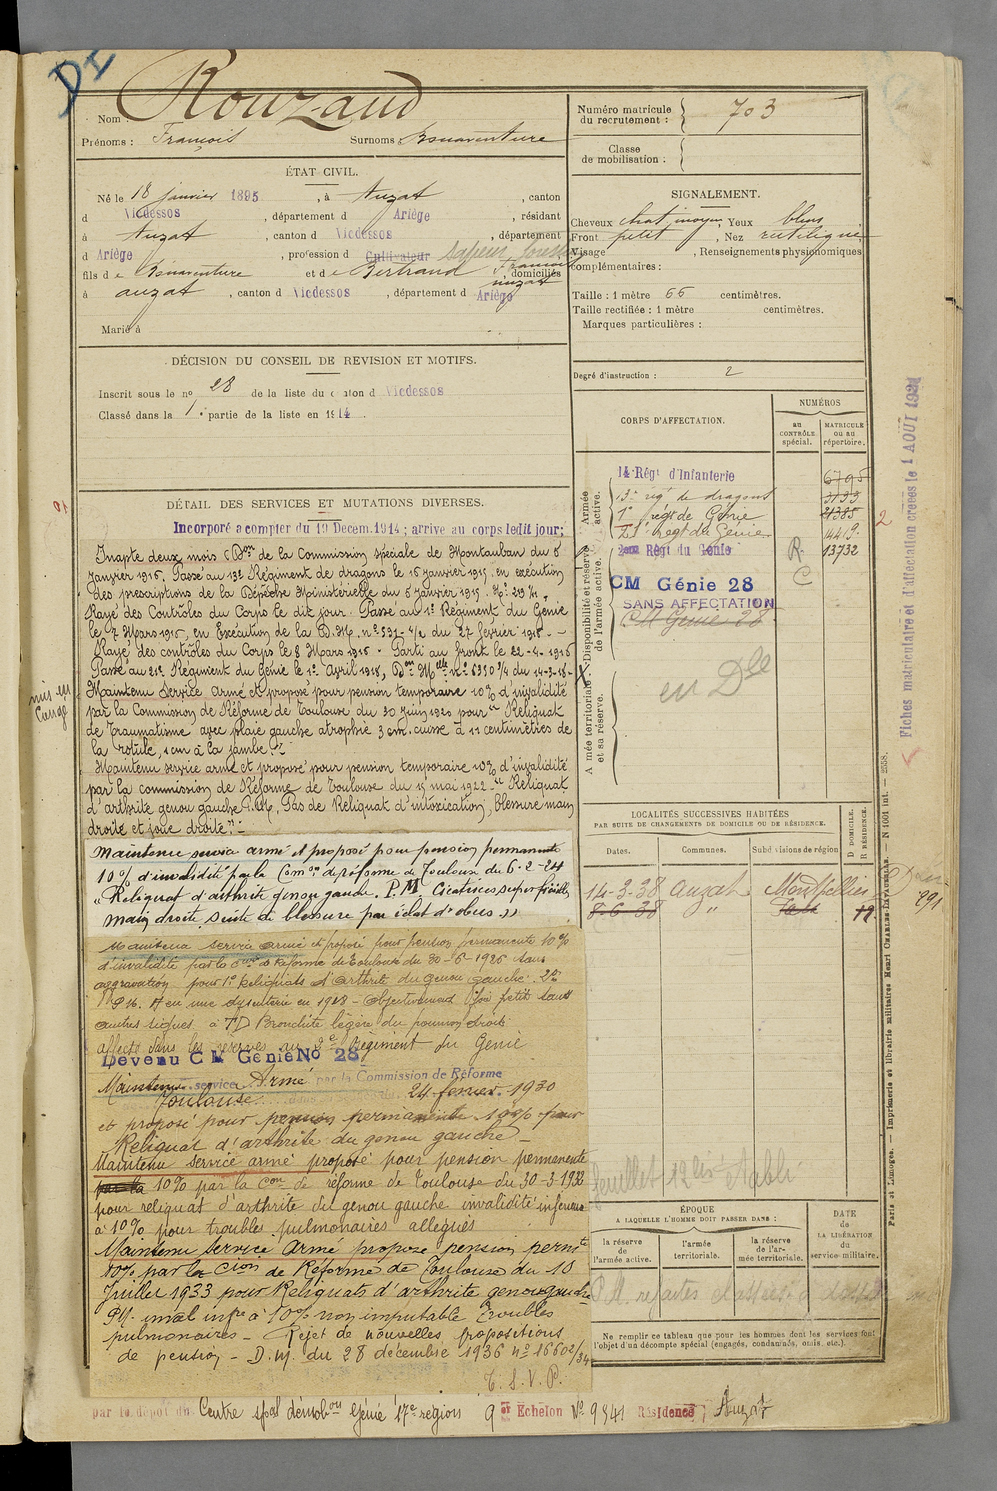 DI
Nom : Rouzaud
Prénoms : François Surnoms : Bonaventure
Numéro matricule du recrutement : 703
Classe de mobilisation :
ÉTAT CIVIL.
Né le 18 janvier 1895, à Auzat, canton
d Vicdessos, département d Ariège, résidant
à Auzat, canton d Vicdessos, département
d Ariège, profession d Cultivateur sapeur
fils de Bonaventure et de Bertrand Françoise, domiciliés
à auzat, canton d Vicdessos, département d Ariège
Marié à
SIGNALEMENT.
Cheveux chat moyen, Yeux bleus
Front petit, Nez rectiligne
Visage , Renseignements physionomiques
complémentaires :
Taille : 1 mètre 66 centimètres.
Taille rectifiée : 1 mètre centimètres.
Marques particulières :
DÉCISION DU CONSEIL DE REVISION ET MOTIFS.
Inscrit sous le no 28 de la liste du canton d Vicdessos
Classé dans la 1e partie de la liste en 1914.
Degré d'instruction : 2
CORPS D'AFFECTATION.
NUMÉROS
au CONTRÔLE spécial.
MATRICULE ou au répertoire.
Armée active.
14 Régt d'Infanterie 6795
13e régt de dragons 3193
1er régt de Génie 21385
21e Régt du Génie 14419
Disponibilité et réserve de l'armée active.
2eme Régt du Génie R. 13732
CM Génie 28 C
SANS AFFECTATION
CM Génie 28
Armée territoriale et sa réserve.
en Dle
DÉTAIL DES SERVICES ET MUTATIONS DIVERSES.
Incorporé à compter du 19 Décem. 1914 ; arrive au corps ledit jour ;
Inapte deux mois (Don de la Commission spéciale de Montauban du 6
Janvier 1915, Passé au 13e Régiment de dragons le 16 janvier 1915 en exécution
des prescriptions de la Dépêche Ministérielle du 6 janvier 1915.
Rayé des Contrôles du Corps le dit jour. Passé au 1er Régiment du Génie
le 7 Mars 1915, en Exécution de la D.M. no 532-4/2 du 27 février 1915. -
Rayé des contrôles du Corps le 8 Mars 1915. Parti au front le 22-4-1915
Passé au 21e Régiment du Génie le 1er Avril 1918, Don Melle no 6350 3/4 du 14-3-18-
Maintenu Service armé et proposé pour pension temporaire 10% d'invalidité
par la Commission de Réforme de Toulouse du 30 juin 1920 pour "Reliquat
de traumatisme avec plaie gauche atrophie 3 cm. cuisse à 11 centimètres de
la rotule, 1 cm à la jambe".-
Maintenu service armé et proposé pour pension temporaire 10% d'invalidité
par la commission de Réforme de Toulouse du 15 mai 1922 "Reliquat
d'arthrite genou gauche P.M., Pas de Reliquat d'intoxication, blessure main
droite et joue droite".-
mis en Congé
Maintenu service armé et proposé pour pension permanente
10% d'invalidité par la Comon de réforme de Toulouse du 6-2-24
"Reliquat d'arthrite genou gauche. P.M Cicatrices superficielles
main droite suite de blessure par éclat d'obus."
Maintenu service armé et proposé pour pension permanente 10%
d'invalidité par la Con de Réforme de Toulouse du 30-6-1926 sans
aggravation pour 1o Reliquats d'arthrite du genou gauche. 2o
A eu une dysenterie en 1918 - Objectivement foie petit sans
autres signes à TD Bronchite légère du poumon droit
affecté dans les réserves au 2e Régiment du Génie
Devenu CM Génie No 28
Maintenu service Armé par la Commission de Réforme
Toulouse 24 février 1930
et proposé pour pension permanente 10% pour
Reliquat d'arthrite du genou gauche -
Maintenu service armé proposé pour pension permanente
par la 10% par la con de réforme de Toulouse du 30-3-1932
pour reliquat d'arthrite du genou gauche invalidité inférieure
à 10% pour troubles pulmonaires allegués
Maintenu service Armé proposé pension permte
10% par la Cion de Réforme de Toulouse du 10
Juillet 1933 pour Reliquats d'arthrite genou gauche
PM. inval infre à 10% non imputable Troubles
pulmonaires - Rejet de nouvelles propositions
de pension - D.M. du 28 décembre 1936 no 16602/34
T. S. V. P.
par le dépôt du Centre spal démobon Génie 17e région 9 er Echelon No 9341 Résidence ; Auzat
LOCALITÉS SUCCESSIVES HABITÉES
PAR SUITE DE CHANGEMENTS DE DOMICILE OU DE RÉSIDENCE.
Dates. Communes. Subdivisions de région D. DOMICILE. R. RÉSIDENCE.
14-3-38 auzat Montpellier D
8-6-38 " 291
feuillet 12 bis établi
ÉPOQUE
A LAQUELLE L'HOMME DOIT PASSER DANS :
la réserve de l'armée active.
l'armée territoriale.
la réserve de l'armée territoriale.
DATE de LA LIBÉRATION du service militaire.
Ne remplir ce tableau que pour les hommes dont les services font
l'objet d'un décompte spécial (engagés, condamnés, omis, etc.).
Fiches matriculaire et d'affectation créées le 1 AOUT 1921
Paris et Limoges. - Imprimerie et librairie militaires Henri CHARLES-LAVAUZELLE. - N 1001 int. - 2558.